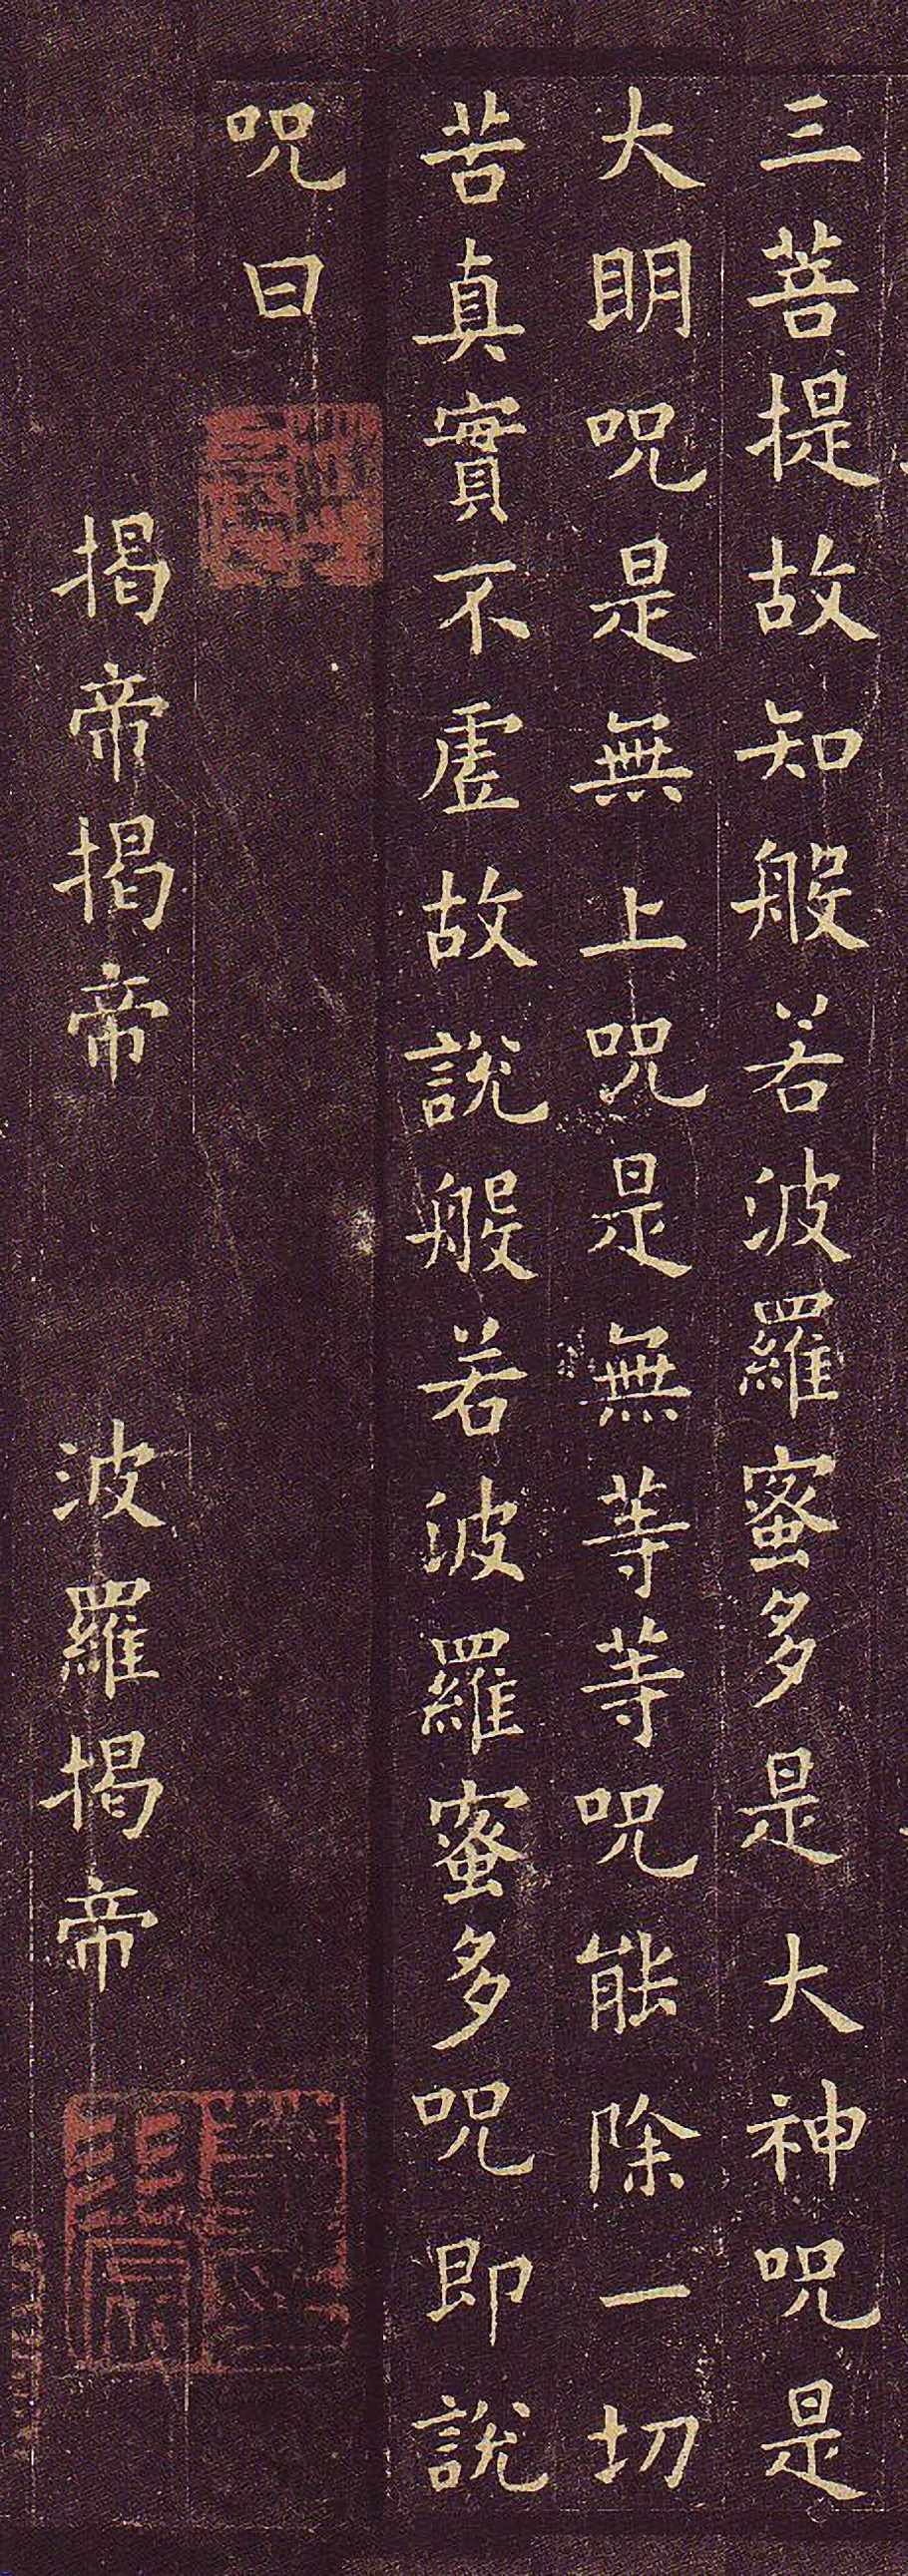 三菩提故知般若波羅蜜多是大神呪是
大明呪是無上呪是無等等呪能除一切
苦真實不虛故說般若波羅蜜多呪即說
呪曰
揭帝揭帝　波羅揭帝